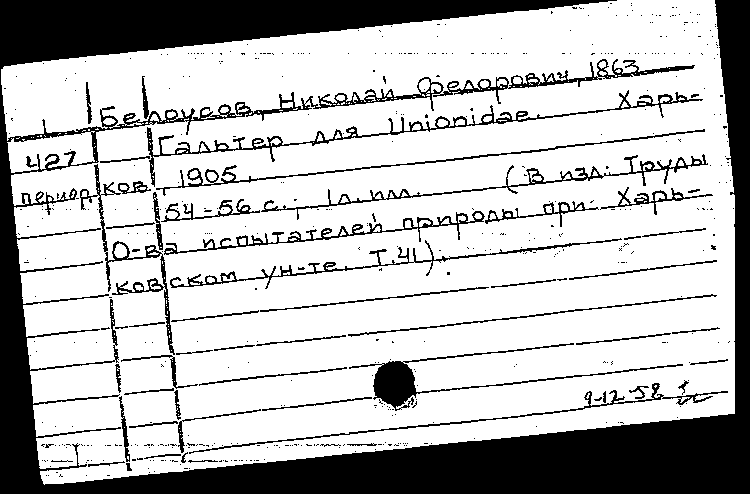 Белоусов, Николай Федорович, 1863
Гальтер для Unionidae. Харь-
427
период. ков, 1905.
54-56 с.; 1 л. илл. (В изд: Труды
О-ва испытателей природы при Харь-
ковском ун-те. Т.41).
9-12-58